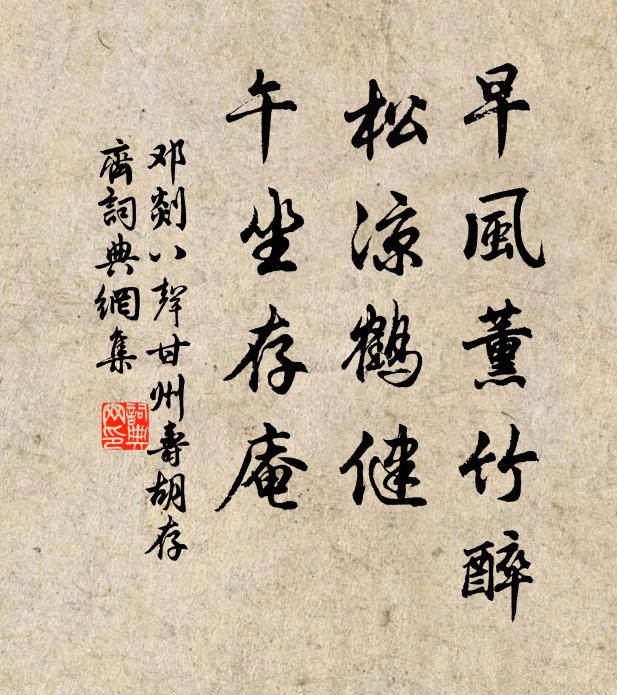 早風薰竹醉
松涼鶴健
午坐存庵
邓剡八聲甘州壽胡存
齊詞典網集
詞典
网印